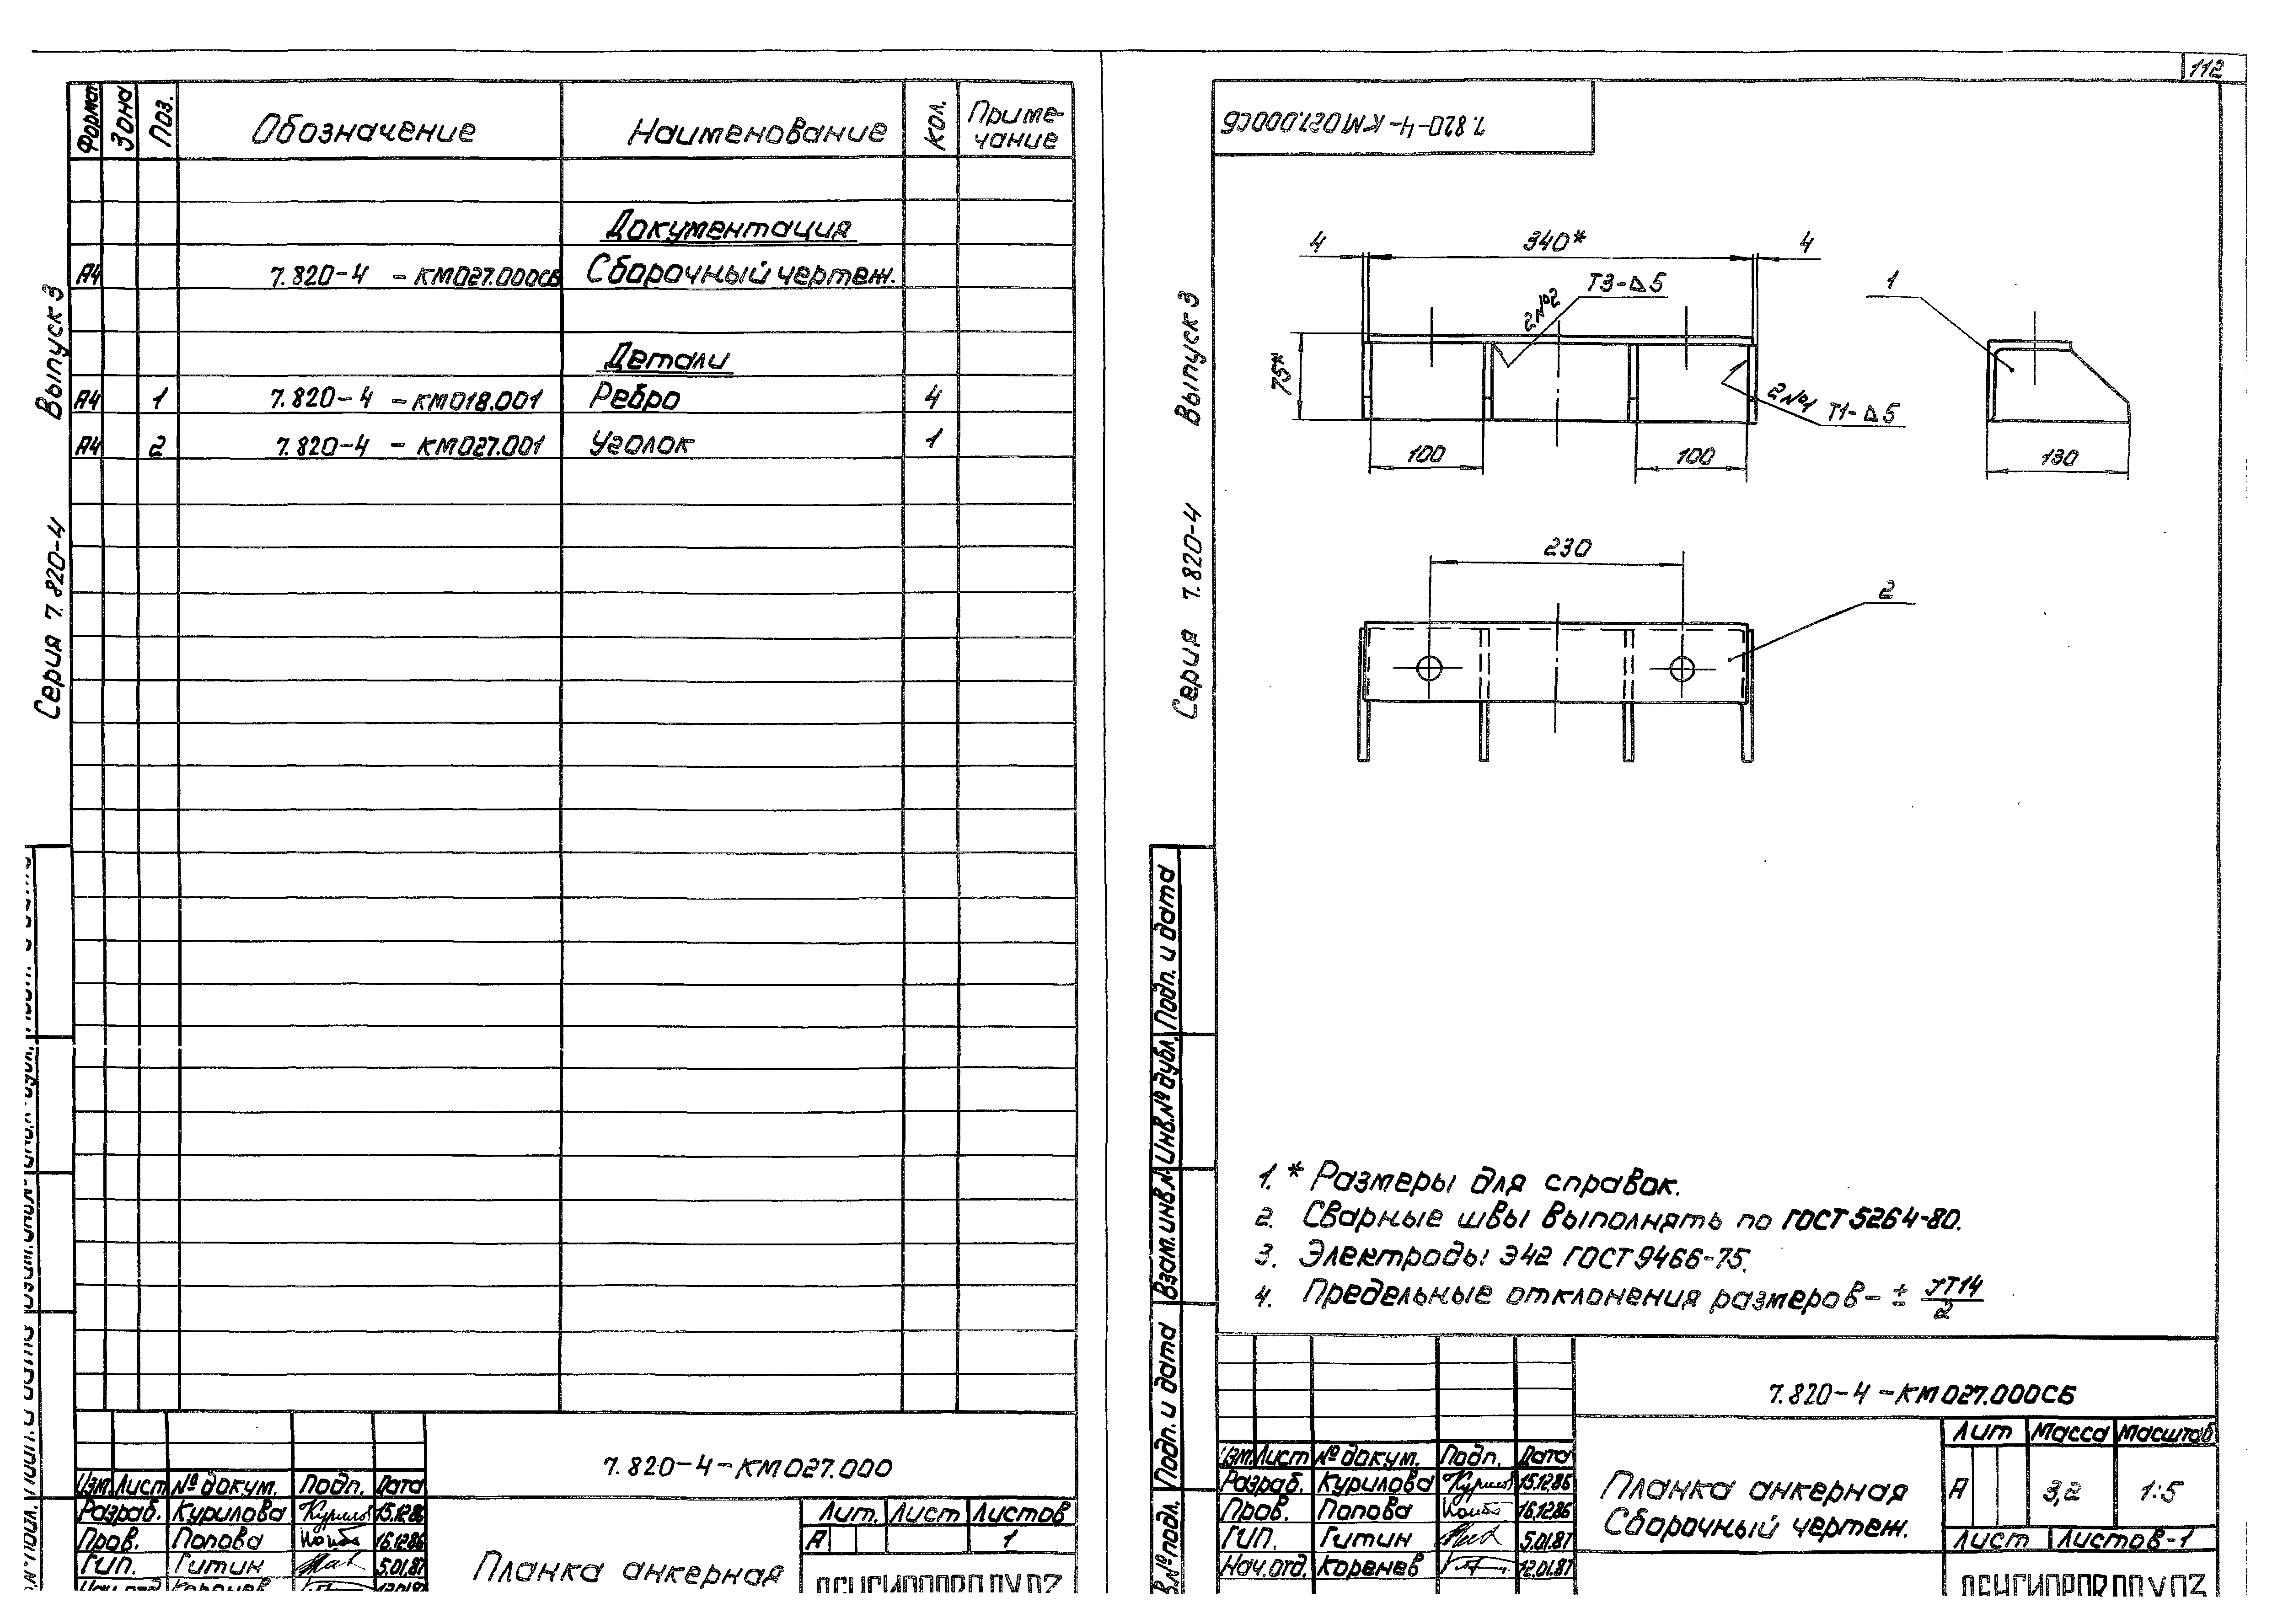 Формат Зона Поз. Обозначение Наименование Кол. Приме-
чание
Документация
А4 7.820-4 - КМ027.000СБ Сборочный чертеж.
Детали
А4 1 7.820-4 - КМ018.001 Ребро 4
А4 2 7.820-4 - КМ027.001 Уголок 1
Серия 7.820-4 Выпуск 3
7.820-4-КМ027.000
Изм. Лист № докум. Подп. Дата
Разраб. Курилова 15.12.86
Пров. Попова 16.12.86
ГИП. Гитин 5.01.87
Нач.отд. Коренев 12.01.87
Планка анкерная
Лит. Лист Листов
А 1
112
7.820-4-КМ027.000СБ
Серия 7.820-4 Выпуск 3
4 340* 4
Т3-⊿5
2№2
75*
2№1 Т1-⊿5
100 100
1
130
230
2
1. * Размеры для справок.
2. Сварные швы выполнять по ГОСТ 5264-80.
3. Электроды Э42 ГОСТ 9466-75.
4. Предельные отклонения размеров- ± JT14/2
Подп. и дата
Инв.№ дубл.
Взам.инв.№
Подп. и дата
7.820-4-КМ027.000СБ
Изм. Лист № докум. Подп. Дата
Разраб. Курилова 15.12.86
Пров. Попова 16.12.86
ГИП. Гитин 5.01.87
Нач.отд. Коренев 12.01.87
Планка анкерная
Сборочный чертеж.
Лит Масса Масштаб
А 3,2 1:5
Лист Листов-1